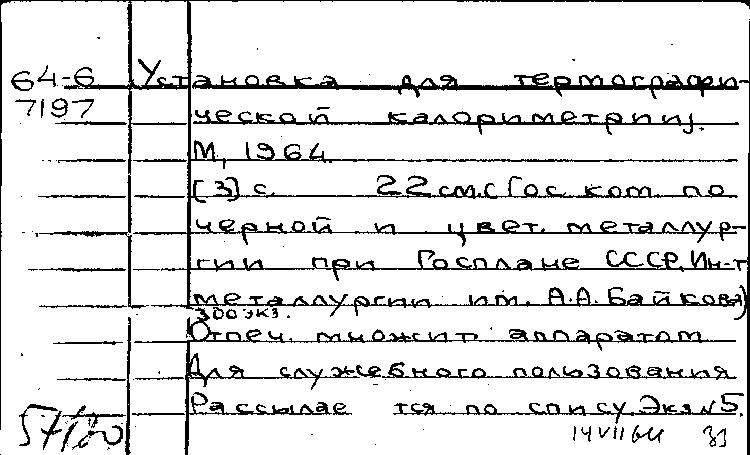 64-6 Установка для термографи-
7197 ческой калориметрии.
М, 1964.
[3] с. 22 см. (Гос. ком. по
черной и цвет. металлур-
гии при Госплане СССР. Ин-т
металлургии им. А.А. Байкова)
300 экз.
Отпеч. множит. аппаратом
Для служебного пользования
Рассылае тся по спису. Экз N 5.
14 VII 64